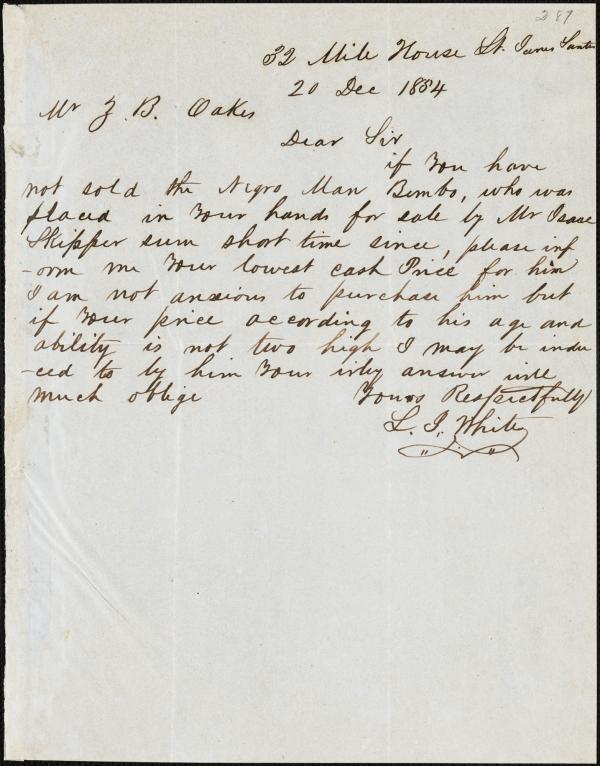 287
32 Mile House St. James Santee
20 Dec 1854
Mr Z. B. Oakes
Dear Sir
if Your have
not sold the Negro Man Bimbo, who was
placed in Your hands for sale by Mr Isaac
Skipper sum short time since, please inf
-orm me Your lowest cash Price for him
I am not anxious to purchase him but
if Your price according to his age and
ability is not two high I may be indu
-ced to by him Your irly answer will
much oblige Yours Respectfully
L. J. White